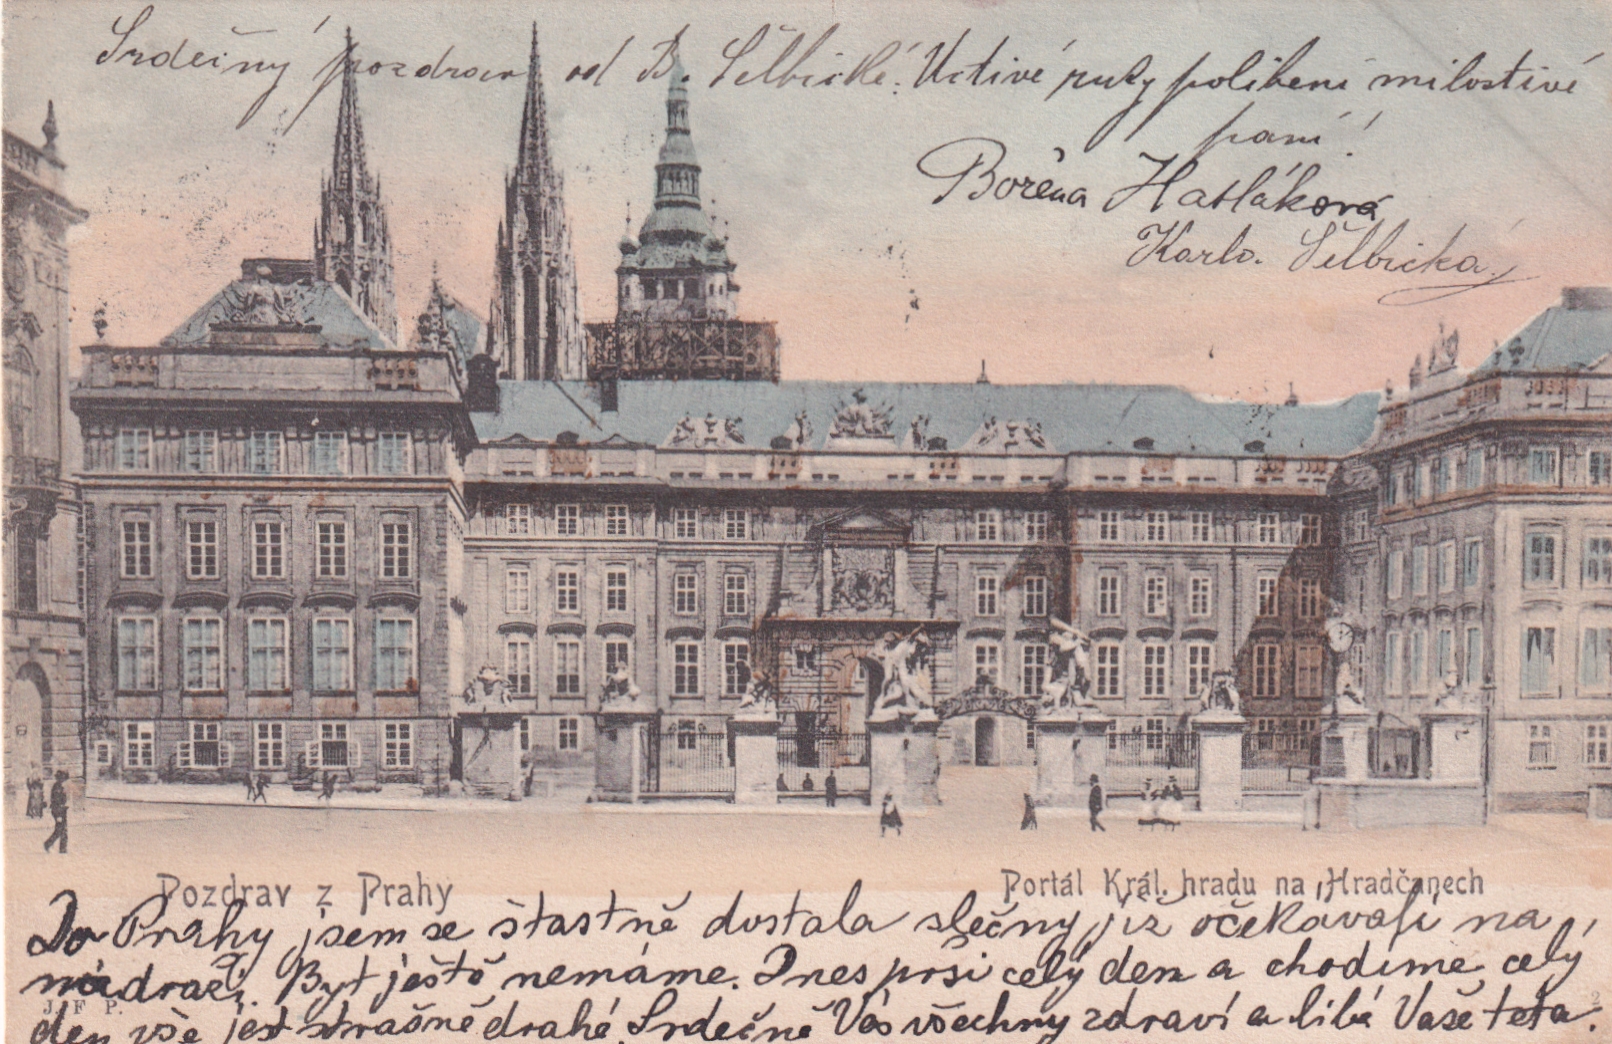 Srdečný pozdrav od B. Šelbické. Uctivé ruky políbení milostivé
paní!
Božena Hatláková
Karla Šelbická
Pozdrav z Prahy
Portál Král. hradu na Hradčanech
Do Prahy jsem se štastně dostala slečny již očekávali na
nádraží. Byt ještě nemáme. Dnes prší celý den a chodíme celý
J. F. P.
2
den vše jest strašně drahé. Srdečně Vás všechny zdraví a líbá Vaše teta.